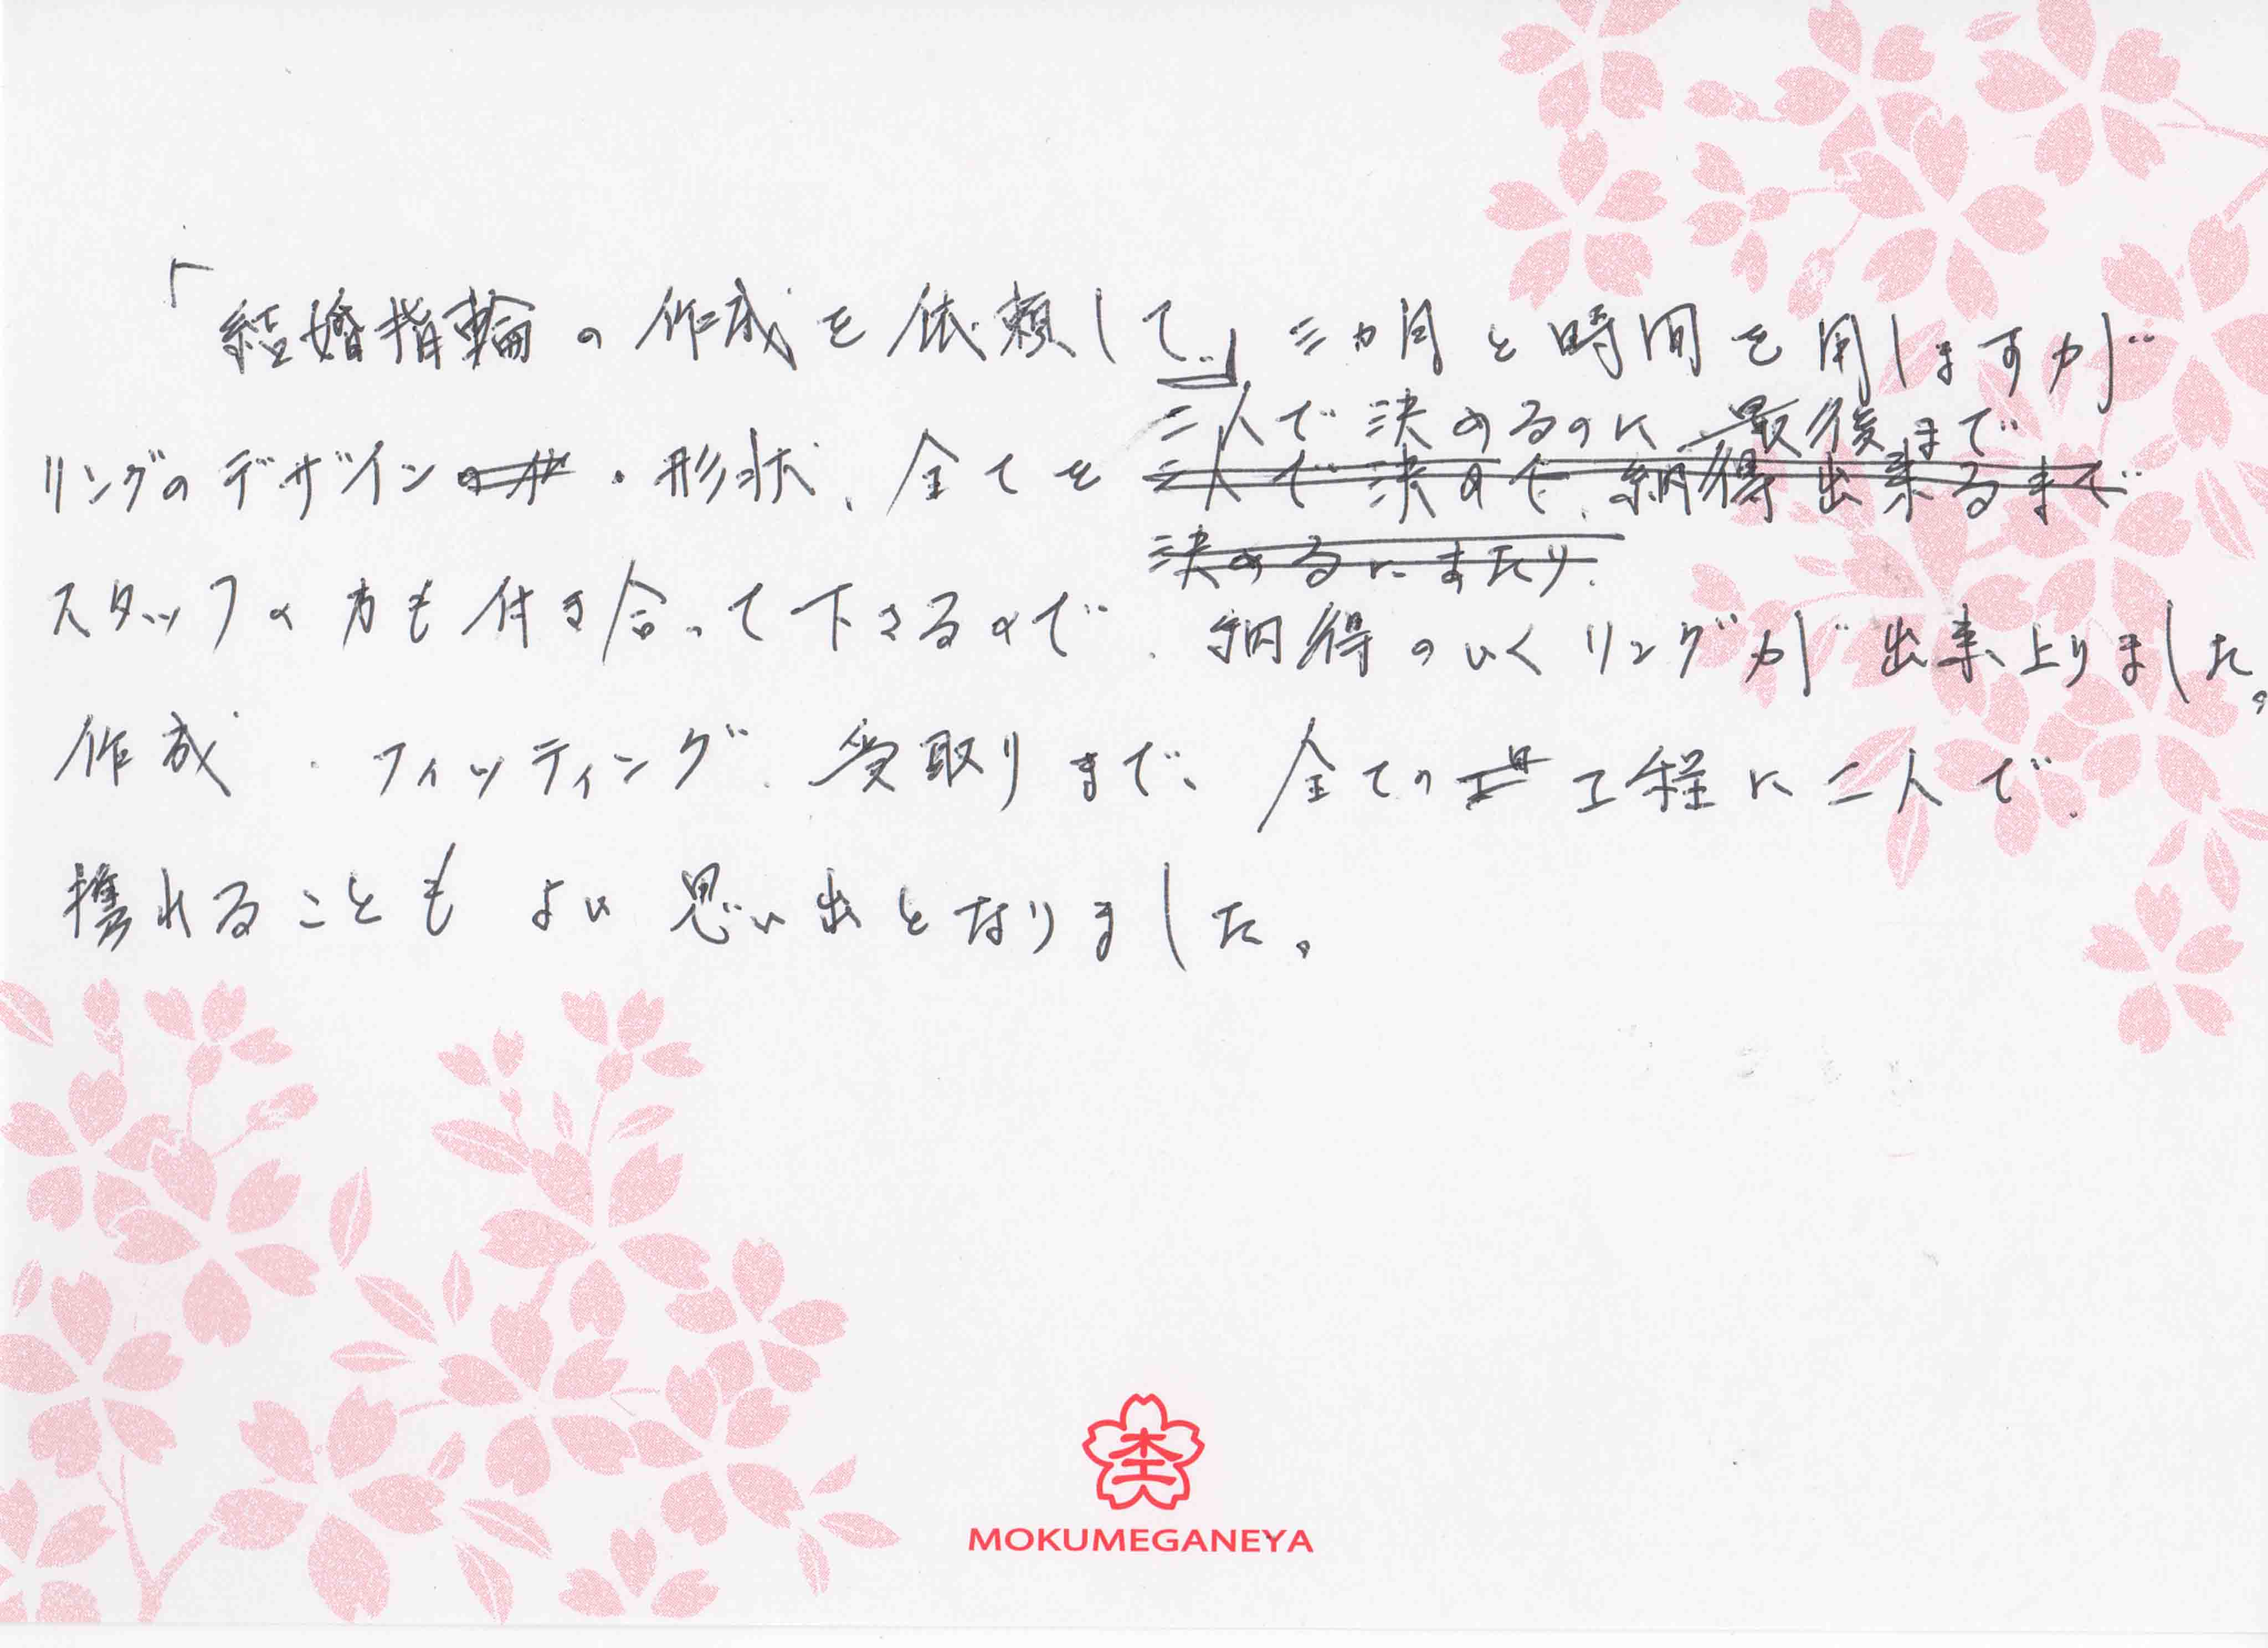 「結婚指輪の作成を依頼して」三ヵ月と時間を用しますが
リングのデザイン・形状、全てを二人で決めるのに、最後まで
二人で決めて、納得出来るまで
決めるにあたり、
スタッフの方も付き合って下さるので、納得のいくリングが出来上りました。
作成、フィッティング、受取りまで、全ての工程に二人で、
携れることもよい思い出となりました。
杢
MOKUMEGANEYA